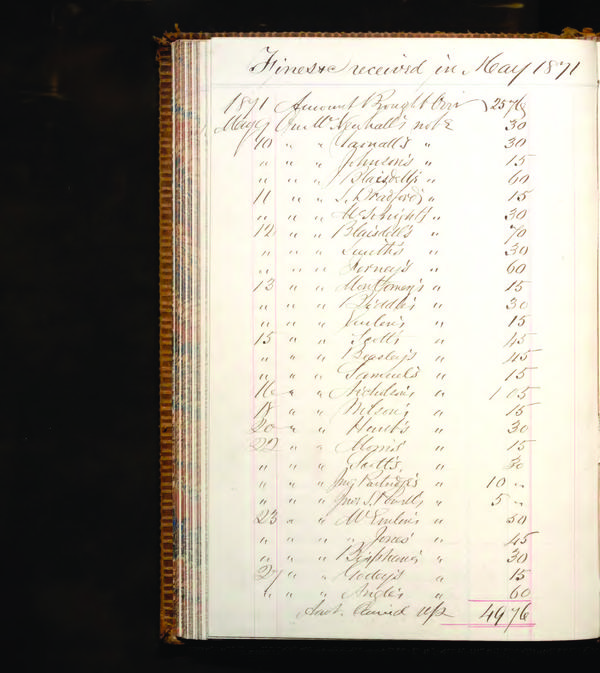 Fines &c received in May 1871
1871 Amount Brought Over 2576
May 9 On Mr Newhall's note 30
10 " " Yarnall's " 30
" " " Johnson's " 15
" " " Blaisdell's " 60
11 " " S. Bradford's " 15
" " " McKnight's " 30
12 " " Blaisdell's " 70
" " " Smith's " 30
" " " Forney's " 60
13 " " Montgomery's " 15
" " " Biddle's " 30
" " " " 15
15 " " Scott's " 45
" " " Beasley's " 45
" " " Samuel's " 15
16 " " Nicholson's " 105
18 " " Wilson's " 15
20 " " Hunt's " 30
22 " " Morris' " 15
" " " Scott's " 30
" " " Jno Partridge's " 10 "
" " " Jno S. " 5 "
23 " " " 50
" " " " Jones' " 45
" " " Bispham's " 30
27 " " Godey's " 15
" " " Angle's " 60
Amt. Carried up 4976